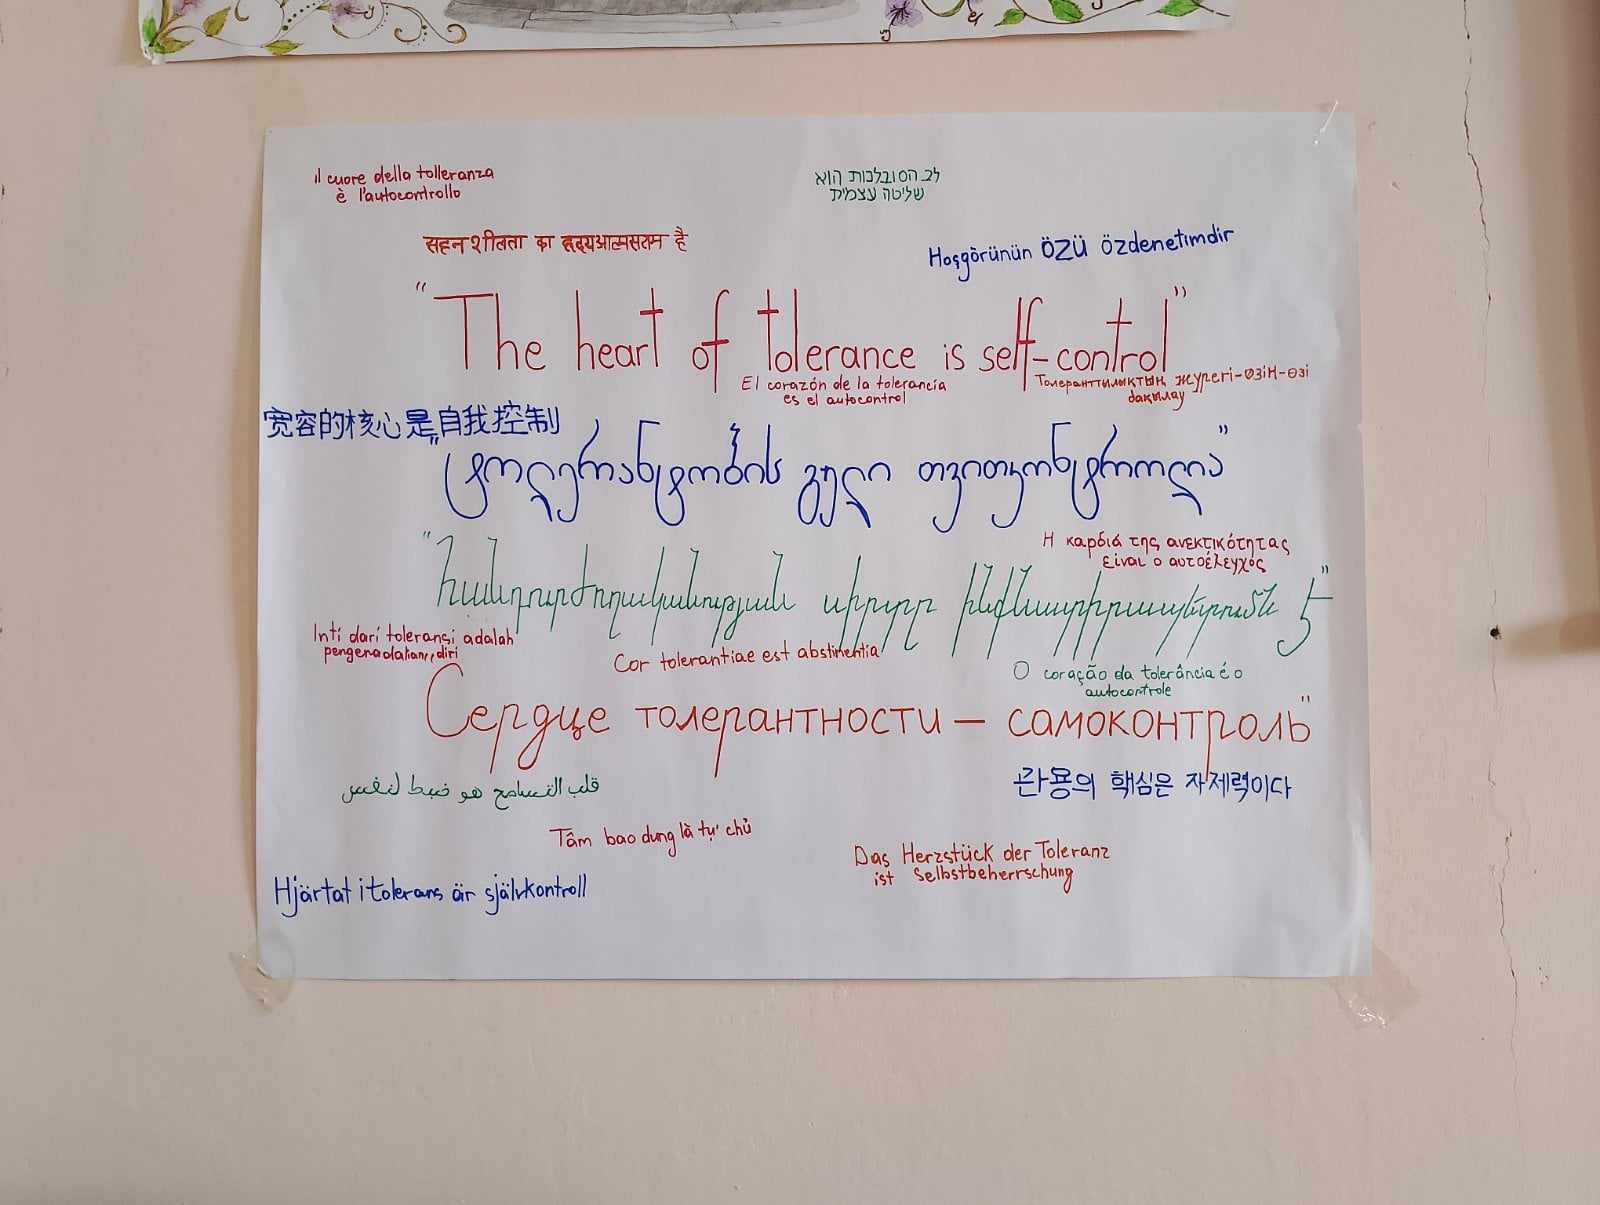 il cuore della tolleranza
è l'autocontrollo
לב הסובלנות הוא
שליטה עצמית
सहनशीलता का हृदय आत्मसंयम है
Hoşgörünün ÖZÜ özdenetimdir
"The heart of tolerance is self-control"
El corazón de la tolerancia
es el autocontrol
Толеранттылықтың жүрегі-өзін-өзі
бақылау
宽容的核心是自我控制
"ტოლერანტობის გული თვითკონტროლია"
Η καρδιά της ανεκτικότητας
είναι ο αυτοέλεγχός
"Հանդուրժողականության սիրտը ինքնատիրապետումն է"
Inti dari toleransi adalah
diri
Cor tolerantiae est abstinentia
O coração da tolerância é o
autocontrole
Сердце толерантности – самоконтроль"
قلب التسامح هو ضبط لنفس
관용의 핵심은 자제력이다
Tâm bao dung là tự chủ
Das Herzstück der Toleranz
ist Selbstbeherrschung
Hjärtat i tolerans är självkontroll